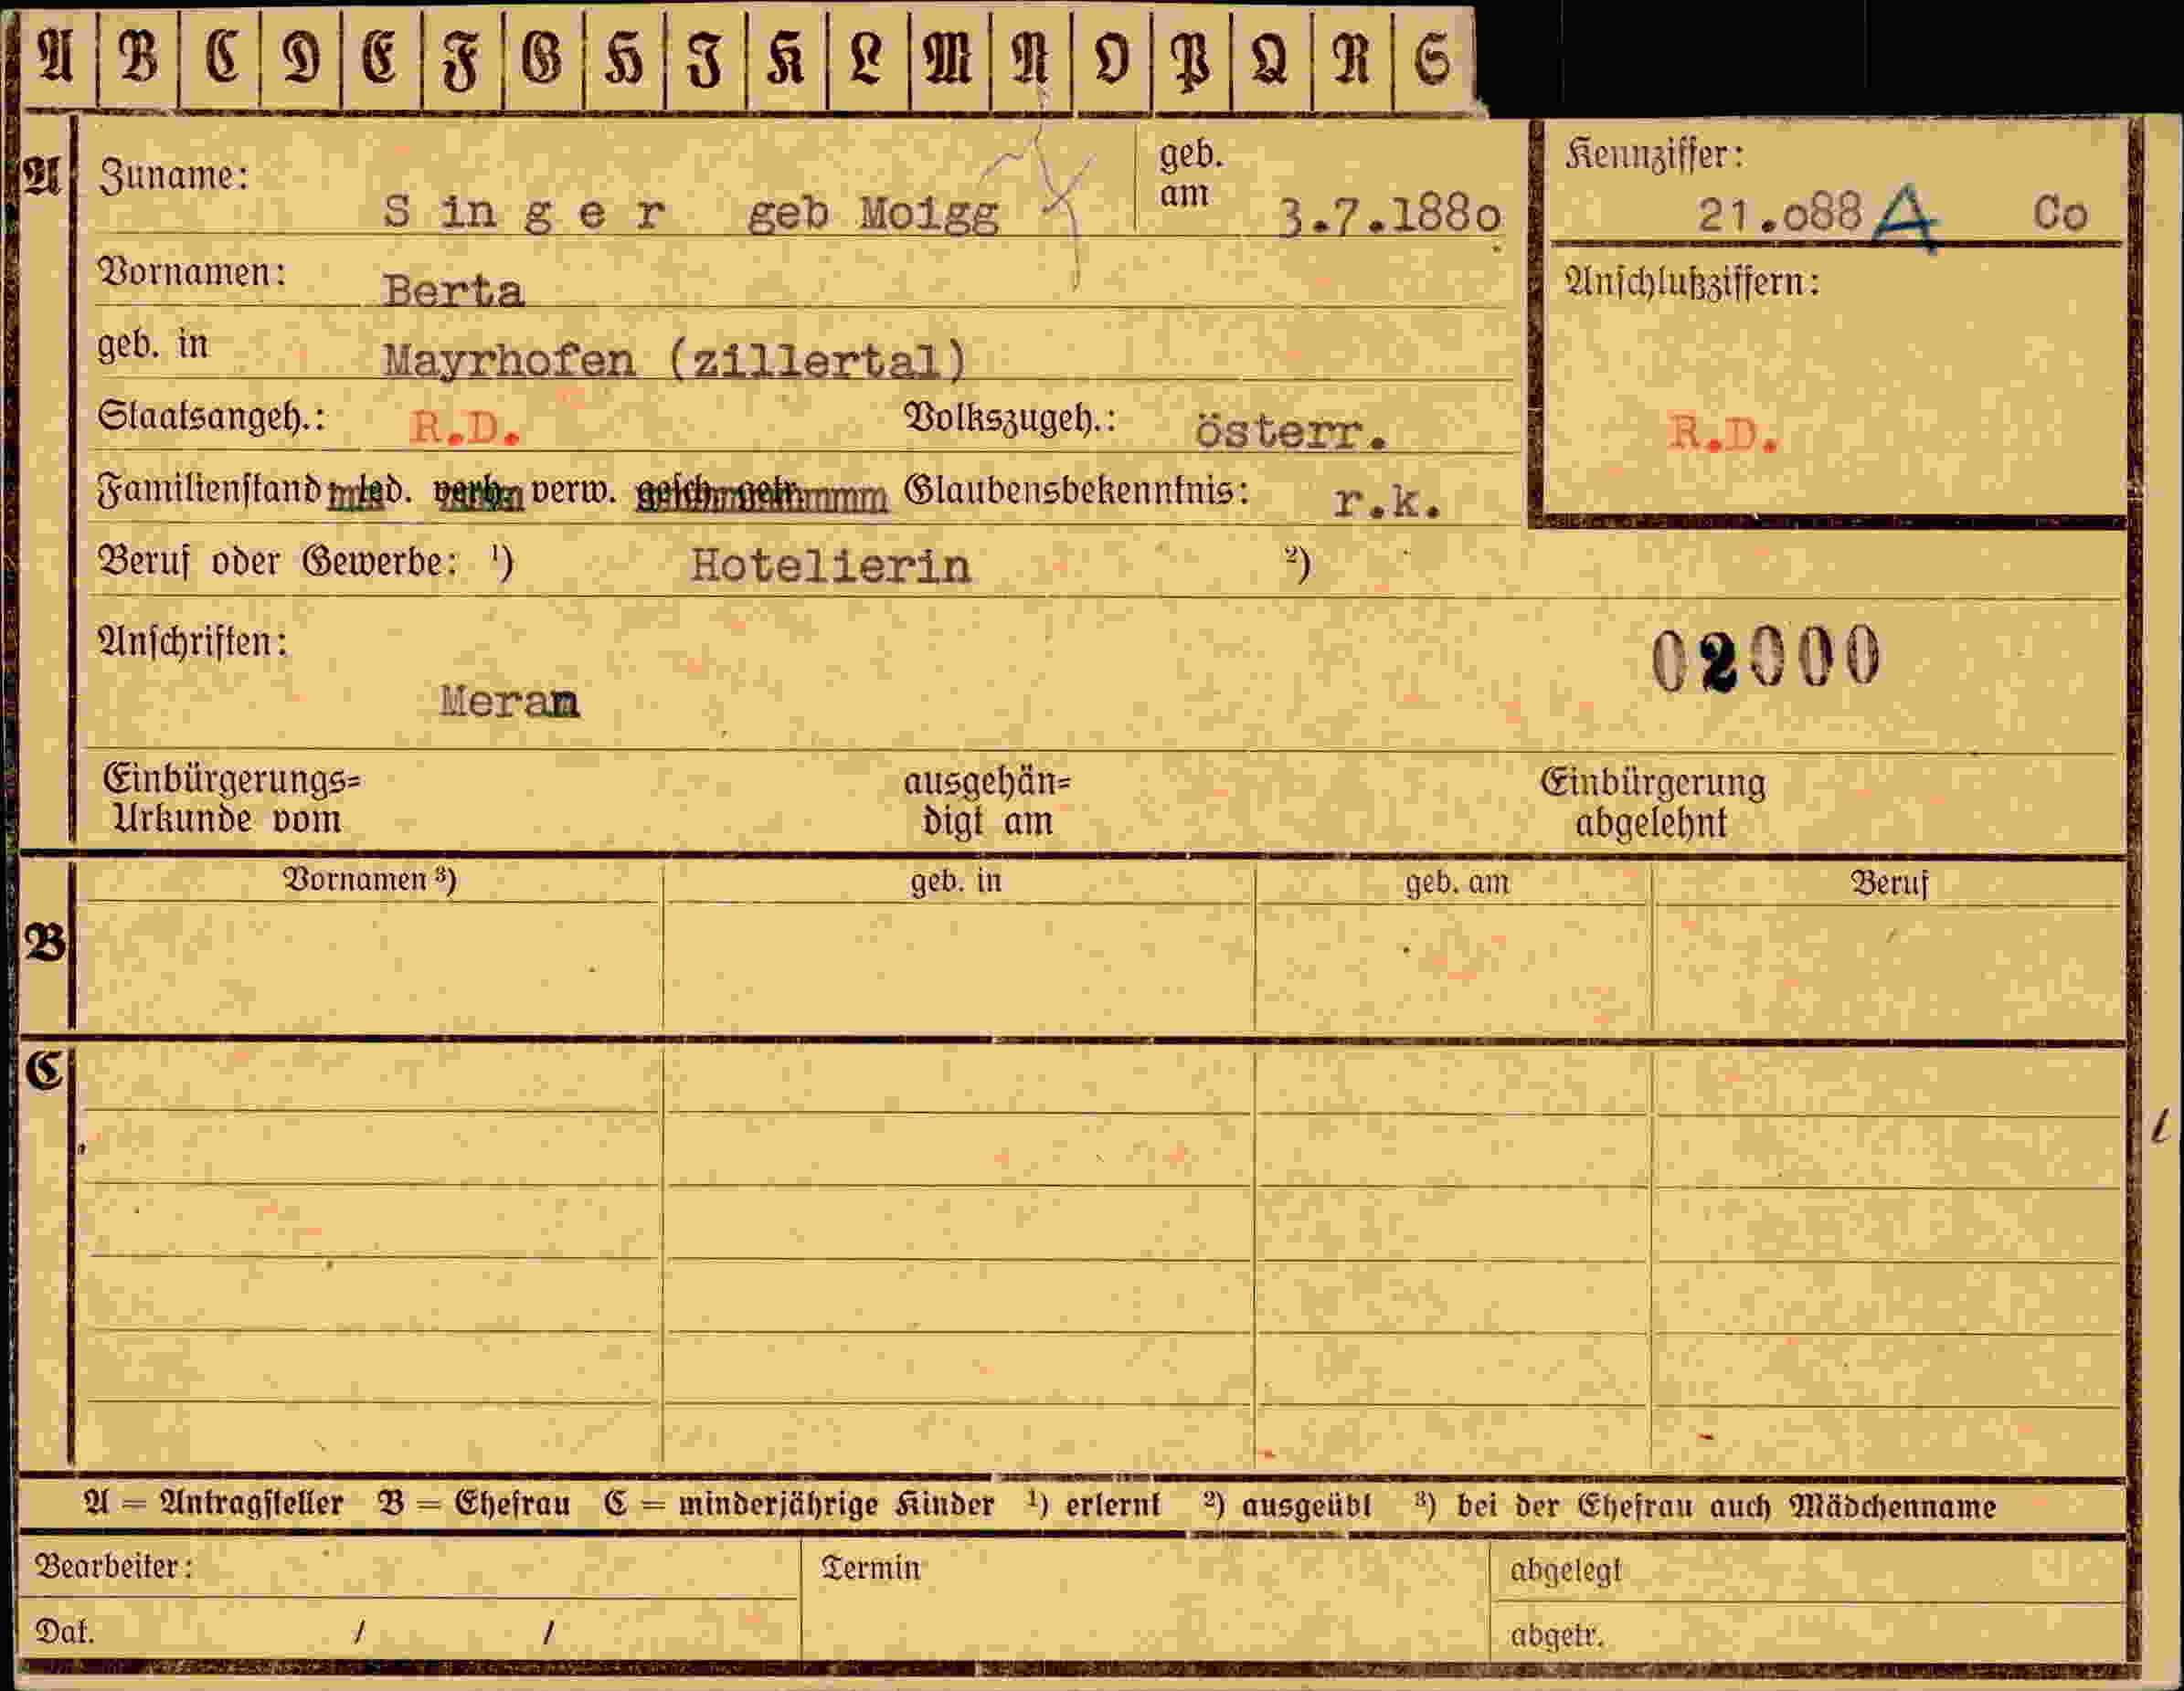 A B C D E F G H I K L M N O P Q R S
A Zuname: Singer geb Moigg geb. am 3.7.1880 Kennziffer: 21.o88 A Co
Vornamen: Berta Anschlußziffern:
geb. in Mayrhofen (zillertal)
Staatsangeh.: R.D. Volkszugeh.: österr. R.D.
Familienstand led. verh. verw. gesch. getr. Glaubensbekenntnis: r.k.
Beruf oder Gewerbe: ¹) Hotelierin ²)
Anschriften: 02000
Meran
Einbürgerungs= ausgehän= Einbürgerung
Urkunde vom digt am abgelehnt
Vornamen ³) geb. in geb. am Beruf
B
C
A = Antragsteller B = Ehefrau C = minderjährige Kinder ¹) erlernt ²) ausgeübt ³) bei der Ehefrau auch Mädchenname
Bearbeiter: Termin abgelegt
Dat. / / abgetr.